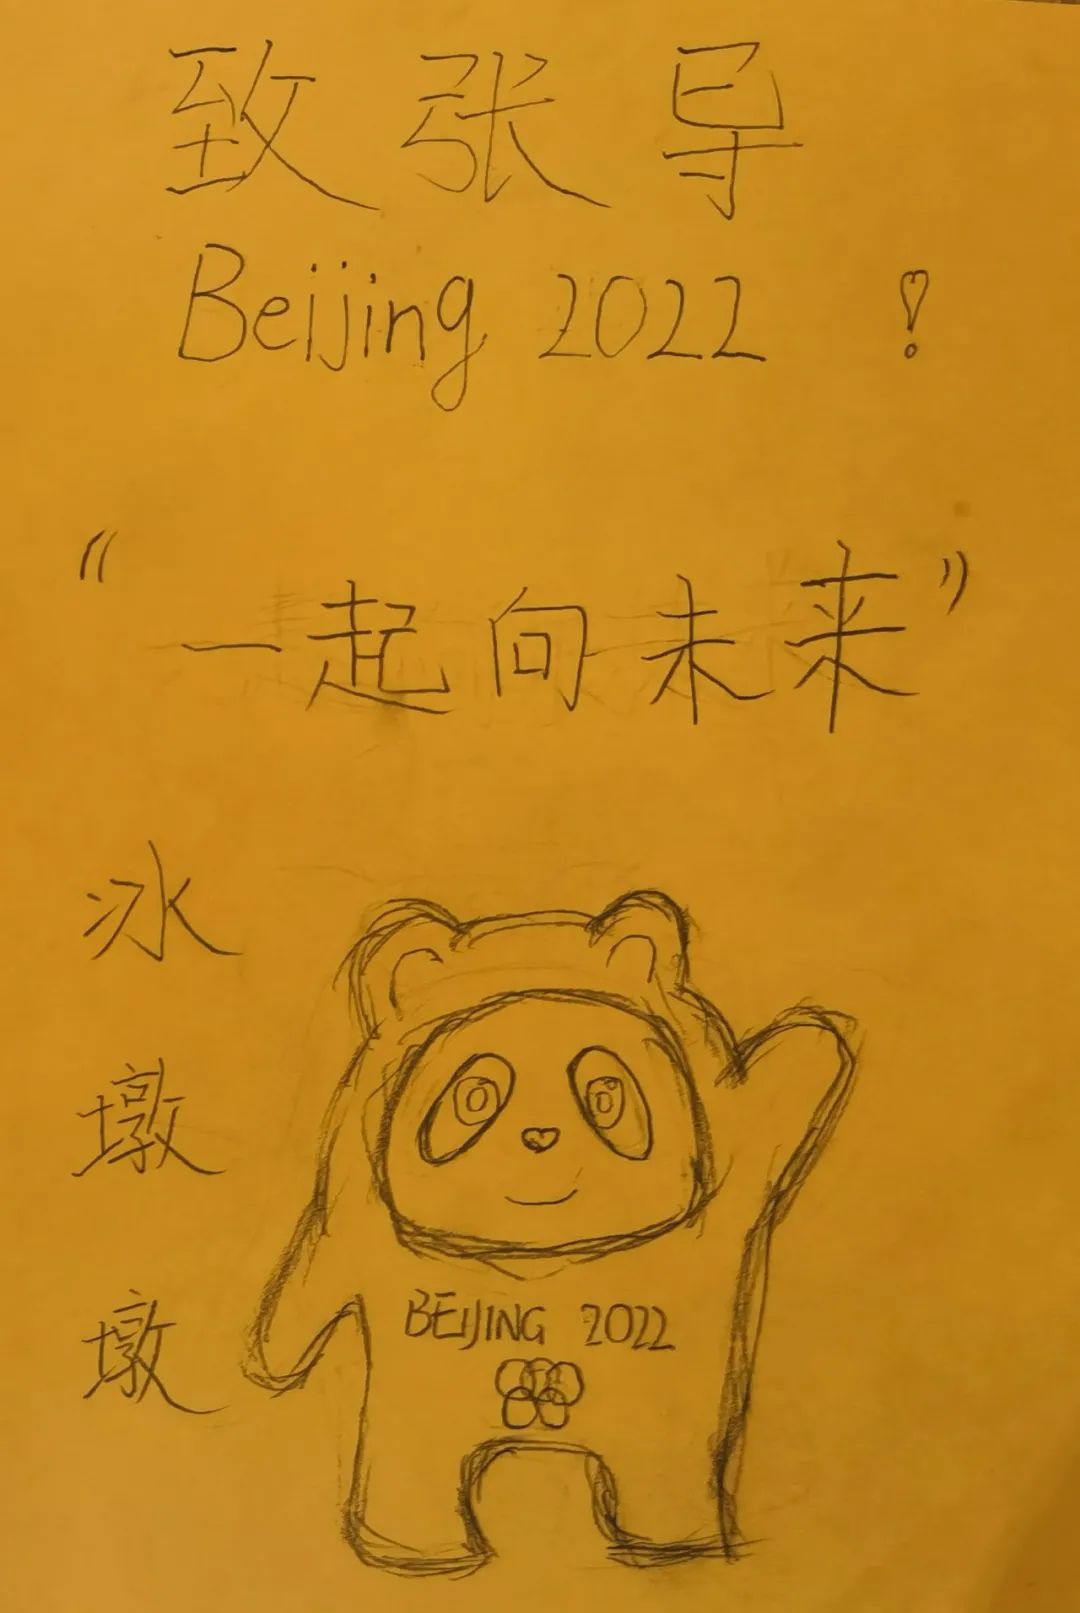 致张导
Beijing 2022 !
“一起向未来”
冰
墩
墩
BEIJING 2022